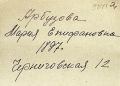 Арбузова
Мария Епифановна
1897.
Черниговская 12